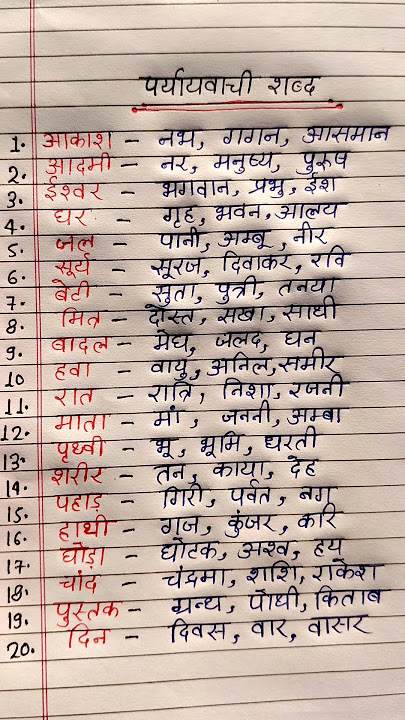 पर्यायवाची शब्द
1. आकाश - नभ, गगन, आसमान
2. आदमी - नर, मनुष्य, पुरुष
3. ईश्वर - भगवान, प्रभु, ईश
4. घर - गृह, भवन, आलय
5. जल - पानी, अम्बू, नीर
6. सूर्य - सूरज, दिवाकर, रवि
7. बेटी - सुता, पुत्री, तनया
8. मित - दोस्त, सखा, साथी
9. बादल - मेघ, जलद, घन
10 हवा - वायु, अनिल, समीर
11. रात - रात्रि, निशा, रजनी
12. माता - मां, जननी, अम्बा
13. पृथ्वी - भू, भूमि, धरती
14. शरीर - तन, काया, देह
15. पहाड़ - गिरी, पर्वत, नग
16. हाथी - गज, कुंजर, करि
17. घोड़ा - घोटक, अश्व, हय
18. चांद - चंद्रमा, शशि, राकेश
19. पुस्तक - ग्रन्थ, पोथी, किताब
20. दिन - दिवस, वार, वासर